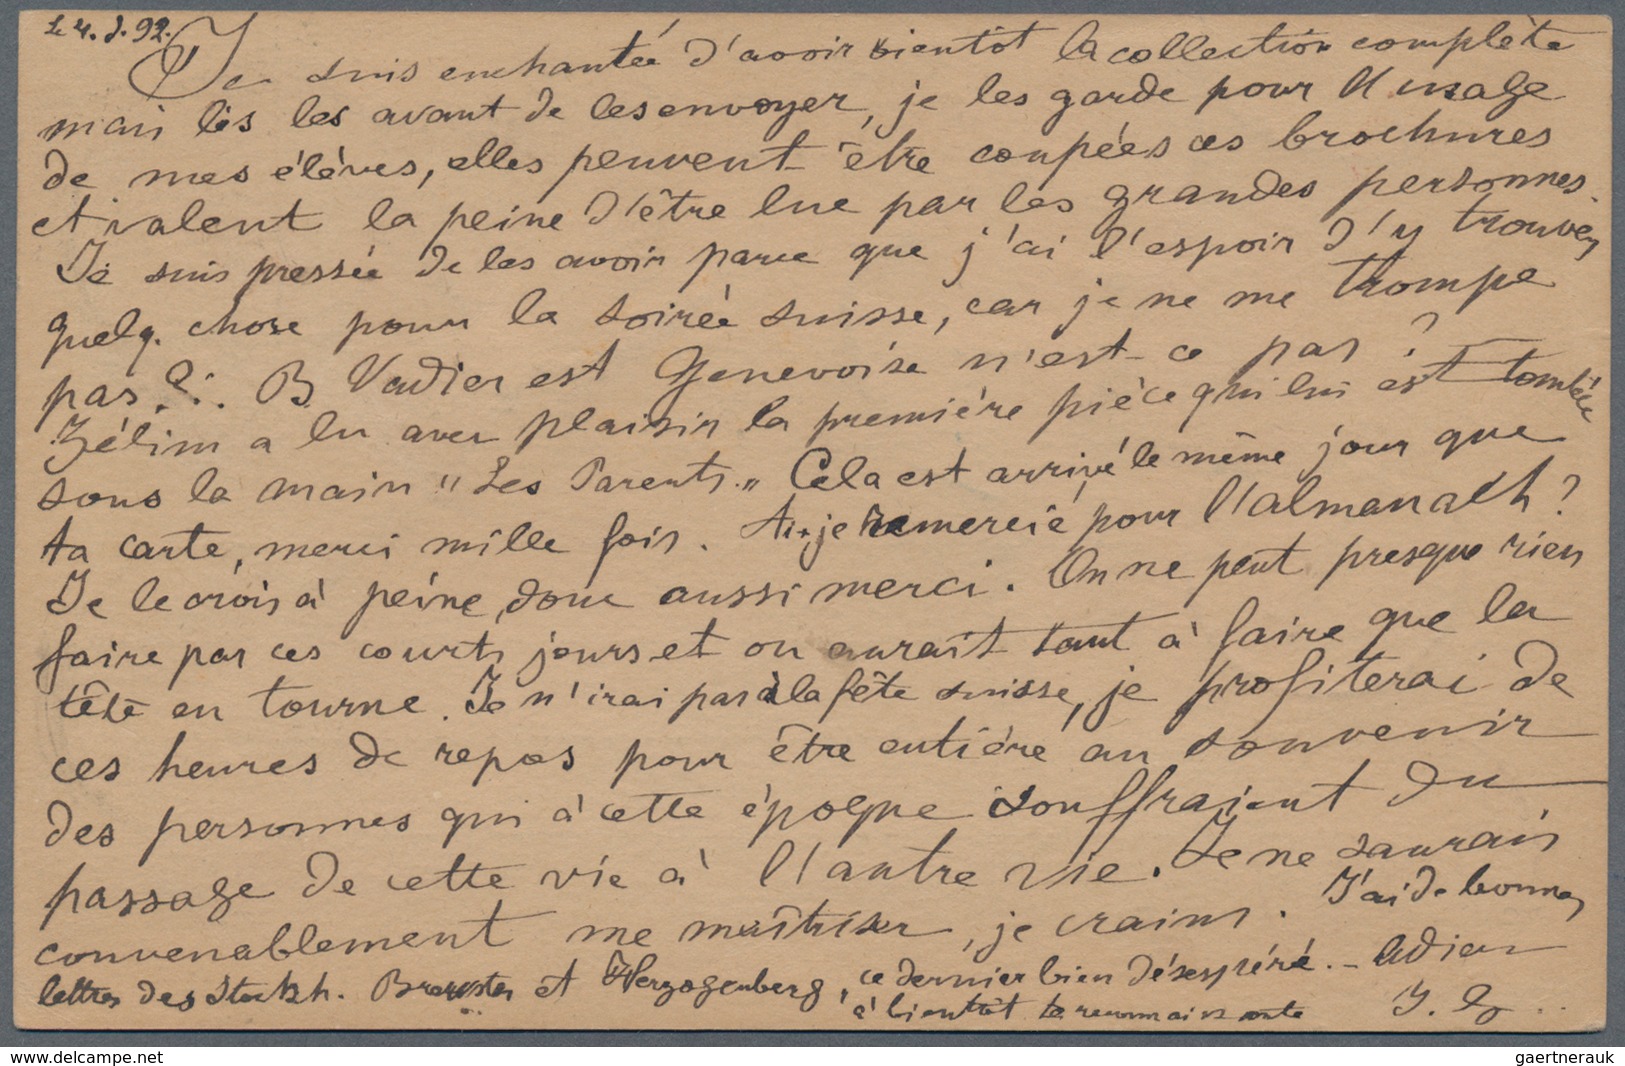 Le 4. J. 92.
Je suis enchantée d'avoir bientôt la collection complète
mais lis les avant de les envoyer, je les garde pour l'usage
de mes élèves, elles peuvent être coupées ces brochures
et valent la peine d'être lue par les grandes personnes.
Je suis pressée de les avoir parce que j'ai l'espoir d'y trouver
quelq. chose pour la soirée suisse, car je ne me trompe
pas ?. B Vadier est Genevoise n'est-ce pas ?
Zélim a lu avec plaisir la première pièce qui lui est tombée
sous la main "Les Parents." Cela est arrivé le même jour que
ta carte, merci mille fois. Ai-je remercié pour l'almanach ?
Je le crois à peine, donc aussi merci. On ne peut presque rien
faire par ces courts jours et on aurait tant à faire que la
tête en tourne. Je n'irai pas à la fête suisse, je profiterai de
ces heures de repos pour être entière au souvenir
des personnes qui à cette époque souffraient du
passage de cette vie à l'autre vie. Je ne saurais
convenablement me maîtriser, je crains. J'ai de bonnes
lettres des Stockh. Brewster et Herzogenberg, ce dernier bien désespéré. - Adieu
à bientôt ta reconnaissante
gaertnerauk